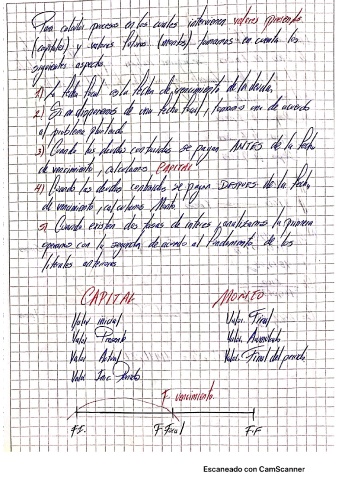 Para calcular procesos en los cuales intervienen valores presentes
(capitales) y valores futuros (montos) tomamos en cuenta los
siguientes aspectos.
1) La fecha focal es la fecha de vencimiento de la deuda.
2) Si no disponemos de una fecha focal, tomamos una de acuerdo
al problema planteado
3) Cuando las deudas contraidas se pagan ANTES de la fecha
de vencimiento, calculamos CAPITAL
4) Cuando las deudas contraidas se pagan DESPUES de la fecha
de vencimiento, calculamos Monto
5) Cuando existen dos tasas de interes analizamos la primera
operamos con la segunda de acuerdo al fundamento de los
literales anteriores
CAPITAL MONTO
Valor inicial Valor Final
Valor Presente Valor Acumulado
Valor Actual Valor Final del periodo
Valor
F. vencimiento.
F.I. F Focal F.F
Escaneado con CamScanner